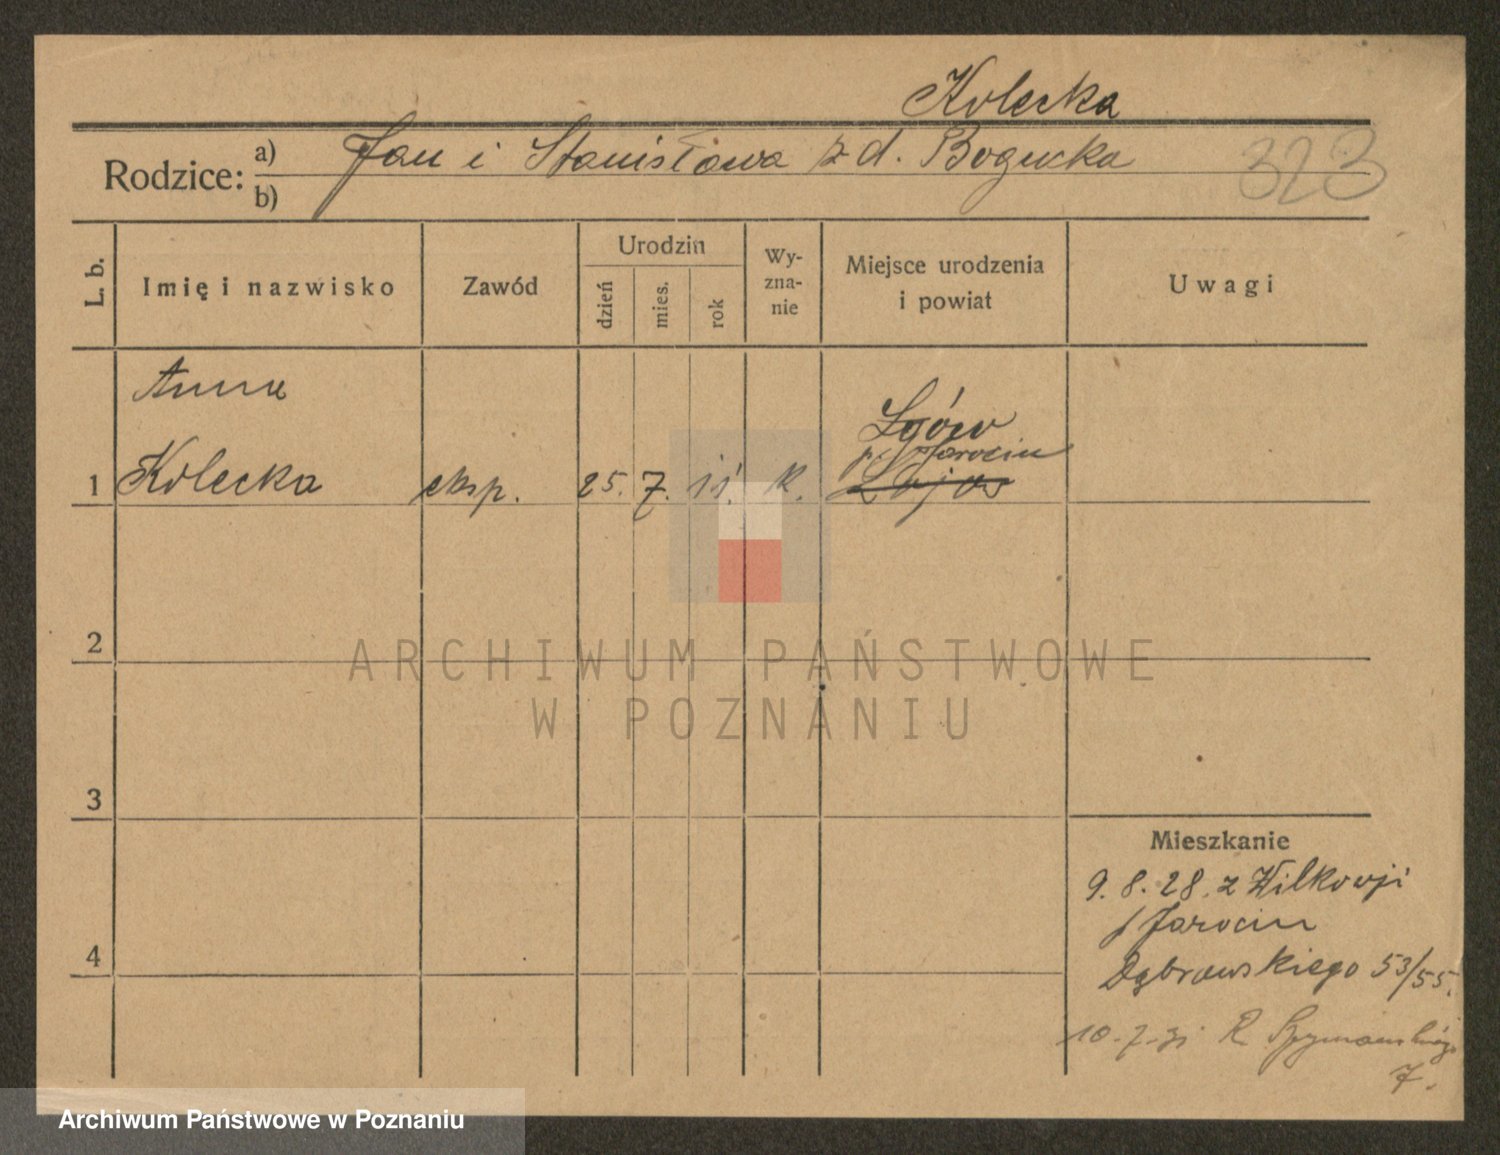 Kolecka
Rodzice: a) Jan i Stanisława z d. Bogucka
b)
323
L. b. Imię i nazwisko Zawód Urodzin dzień mies. rok Wy-zna-nie Miejsce urodzenia i powiat Uwagi
Anna
Lgów
p. Jarocin
1 Kolecka eksp. 25. 7. 11. k.
2
ARCHIWUM PAŃSTWOWE
W POZNANIU
3
Mieszkanie
9. 8. 28. z Wilkowji
p Jarocin
4
Dąbrowskiego 53/55.
10.7.31 R Szymańskiego
7.
Archiwum Państwowe w Poznaniu